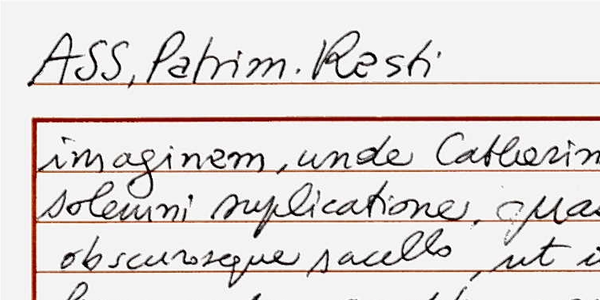 ASS, Patrim. Resti
imaginem, unde Catherin
solemni supplicatione, quas
obscuroseque sacello, ut i